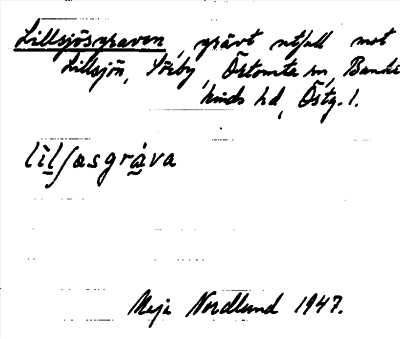 Lillsjösgraven, grävt utfall mot
Lillsjön, Sörby, Örtomta sn, Bankekinds hd, Östg. l.
lìl̠ʃasgrá̠va
Maja Nordlund 1947.